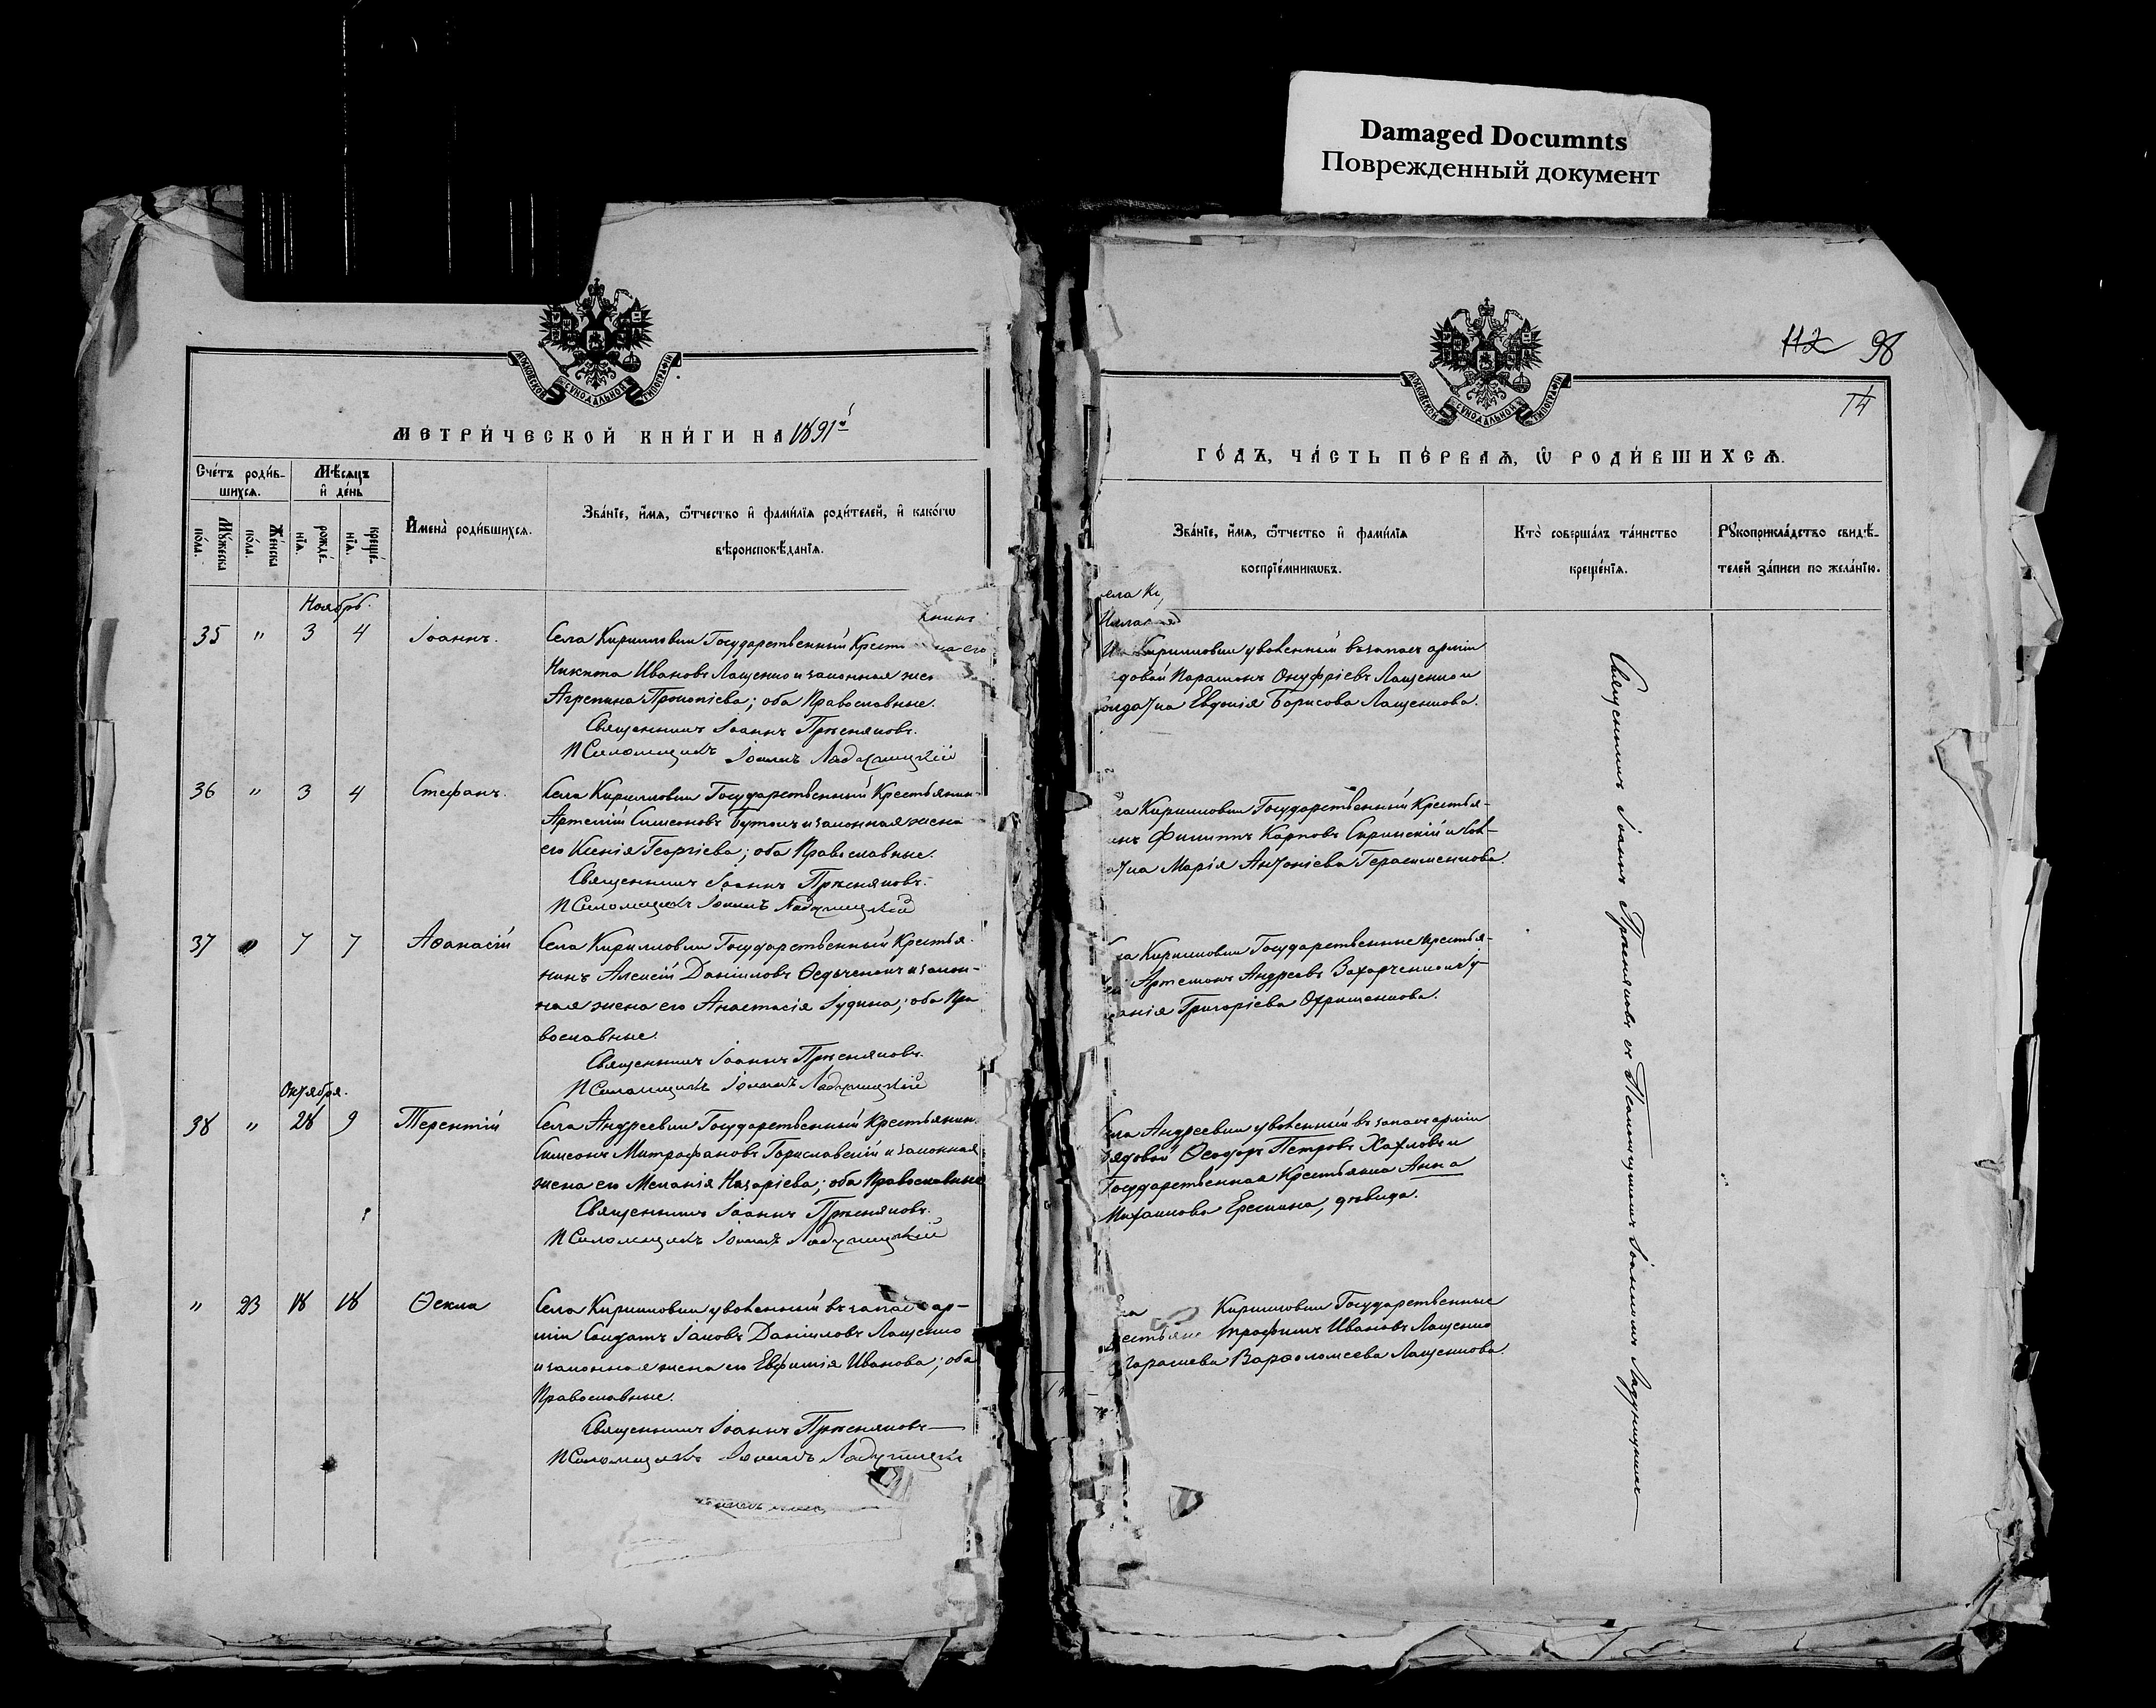 Damaged Documnts
Поврежденный документ
МОСКОВСКОЙ СѴНОДАЛЬНОЙ ТИПОГРАФІИ
МЕТРИ́ЧЕСКОЙ КНИ́ГИ НА 1891й
Сче́тъ роди́в-
шихся.
Мѣ́сяцъ
и де́нь
Мꙋ́жеска
по́ла.
Же́нска
по́ла.
рожде́-
нїя.
креще́-
нїя.
И҆мена̀ роди́вшихся.
Зва́нїе, и҆́мя, ѻ҆́тчество и҆ фами́лїя роди́телей, и҆ како́гѡ
вѣроисповѣ́данїя.
Ноябрь.
35 " 3 4 Іоаннъ.
Села Кирилловки Государственный Крест
Никита Ивановъ Лащенко и законная жена его
Агрепина Прокопіева; оба Православные.
Священникъ Іоаннъ Прѣсняковъ.
Псаломщикъ Іоаннъ Ладухицкій
36 " 3 4 Стефанъ.
Села Кирилловки Государственный Крестьянин-
Артемій Симеоновъ и законная жена
его Ксенія Георгіева; оба Православные.
Священникъ Іоаннъ Прѣсняковъ.
Псаломщикъ Іоаннъ Ладухицкій
37 " 7 7 Аѳанасій
Села Кирилловки Государственный Крестья-
нинъ Алексій Даніиловъ и закон-
ная жена его Анастасія Іудина; оба Пра
вославные.
Священникъ Іоаннъ Прѣсняковъ.
Псаломщикъ Іоаннъ Ладухицкій
Октября.
38 " 28 9 Терентій
Села Андреевки Государственный Крестьянин.
Симеонъ Митрофановъ Гориславскій и законная
жена его Меланія Назаріева; оба Православные
Священникъ Іоаннъ Прѣсняковъ.
Псаломщикъ Іоаннъ Ладухицкій
" 23 18 18 Ѳекла
Села Кирилловки уволенный въ запас ар-
міи Солдатъ Іаковъ Даніиловъ Лащенко
и законная жена его Евфимія Иванова; оба
Православные.
Священникъ Іоаннъ Прѣсняковъ
Псаломщикъ Іоаннъ
112 98
14
МОСКОВСКОЙ СѴНОДАЛЬНОЙ ТИПОГРАФІИ
ГО́ДЪ, ЧА́СТЬ ПЕ́РВАЯ, Ѡ҆ РОДИ́ВШИХСЯ.
Зва́нїе, и҆́мя, ѻ҆́тчество и҆ фами́лїя
воспрїе́мникѡвъ.
Кто̀ соверша́лъ та́инство
креще́нїя.
Рꙋкоприкла́дство свидѣ́-
телей за́писи по жела́нїю.
Кирилловки уволенный въ запас арміи
довой Парамонъ Онуфріевъ Лащенко и
Солдатка Евдокія Борисова Лащенкова.
ла Кирилловки Государственный Крестья-
инъ Филиппъ Карповъ и Сол-
атка Марія Антоніева Герасименкова.
ла Кирилловки Государственные Крестья-
Артемонъ Андреевъ Захарченко и
анія Григоріева
ла Андреевки уволенный въ запас арміи
рядовой Ѳеодоръ Петровъ Хахловъ и
Государственная Крестьянка Анна
Михаилова Ерекина, дѣвица.
Кирилловки Государственные
естьяне Трофимъ Ивановъ Лащенко
Варѳоломеева Лащенкова.
Священникъ Іоаннъ Прѣсняковъ съ Псаломщикомъ Іоанномъ Ладухицкимъ